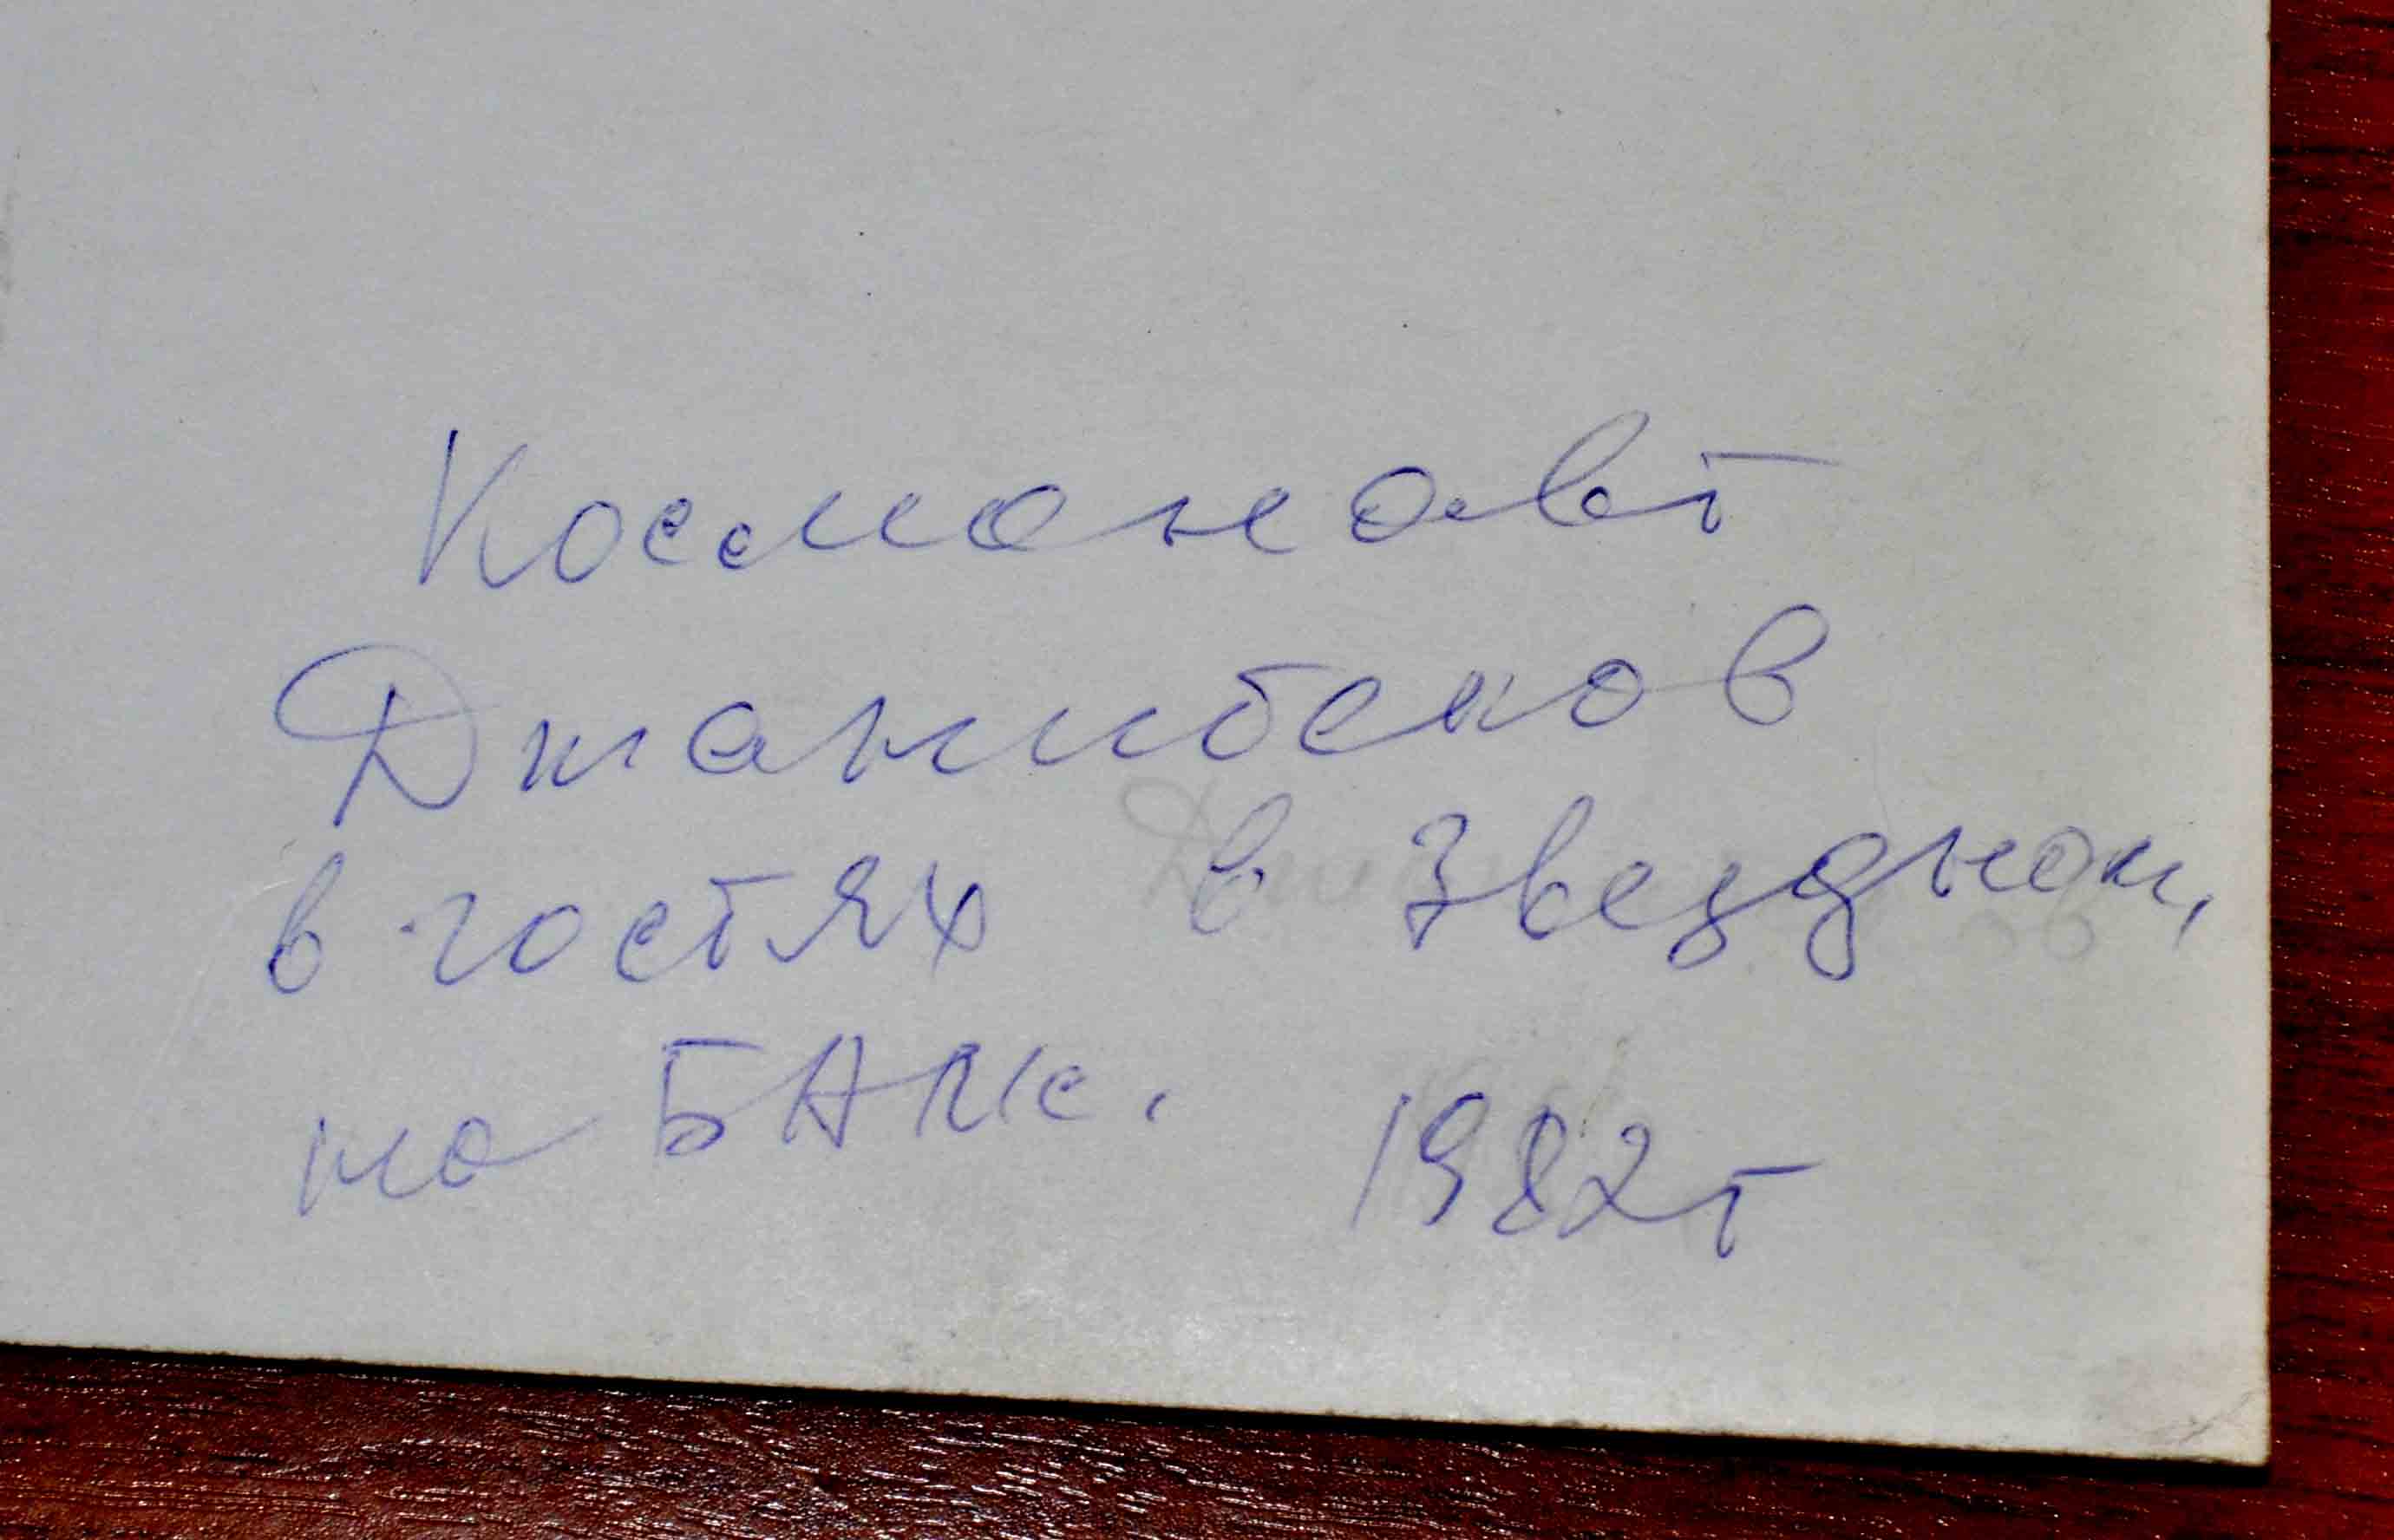 Космонавт
Джанибеков
в гостях в Звездном,
на БАМе.
1982г